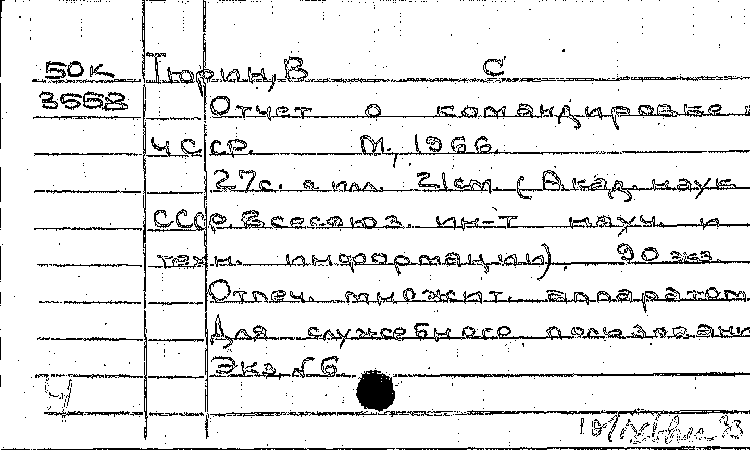 50К Тюрин, В С
3558 Отчет о командировке
ЧССР. М., 1966.
27с. с илл. 21см. (Акад. наук
СССР. Всесоюз. ин-т науч. и
техн. информации). 90 экз.
Отпеч. множит. аппаратом
Для служебного пользовани
Экз. №6
4